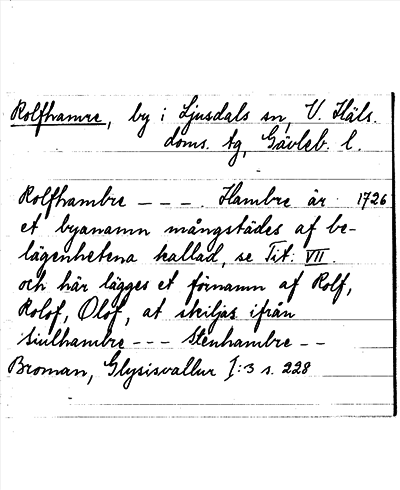 Rolfhamre, by i Ljusdals sn, V. Häls.
doms. tg, Gävleb. l.
Rolfhambre – – – . Hambre är 1726
et byanamn mångstädes af be-
lägenhetena kallad, se Tit: VII.
och här lägges et förnamn af Rolf,
Rolof, Olof, at skiljas ifrån
siulhambre – – – Stenhambre – –
Broman, Glysisvallur I:3 s. 228